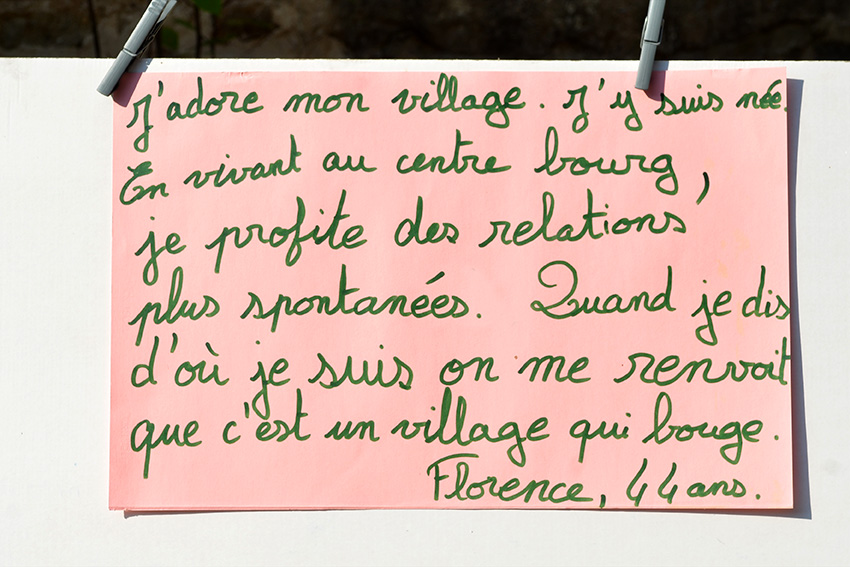 J'adore mon village. J'y suis née.
En vivant au centre bourg,
je profite des relations
plus spontanées. Quand je dis
d'où je suis on me renvoit
que c'est un village qui bouge.
Florence, 44 ans.